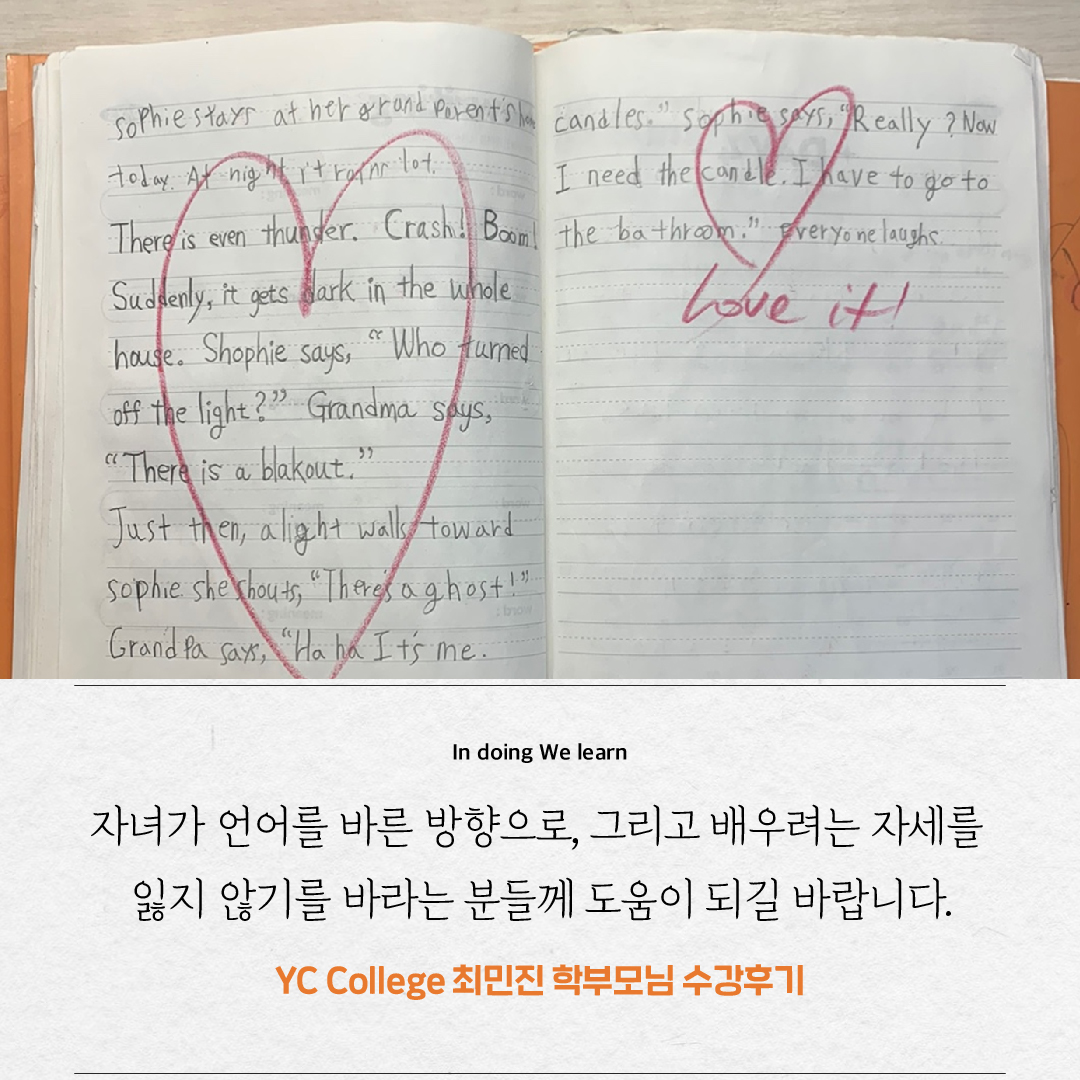 sophie stays at her grand parent's
today. At night it rot.
There is even thunder. Crash! Boom!
Suddenly, it gets dark in the whole
house. Shophie says, "Who turned
off the light?" Grandma says,
"There is a blakout."
Just then, a light walls toward
sophie she shouts, "There's a ghost!"
GrandPa says, "Ha ha It's me.
candles." sophie says, "Really? Now
I need the candle. I have to go to
the bathroom." Everyone laughs.
Love it!
In doing We learn
자녀가 언어를 바른 방향으로, 그리고 배우려는 자세를
잃지 않기를 바라는 분들께 도움이 되길 바랍니다.
YC College 최민진 학부모님 수강후기